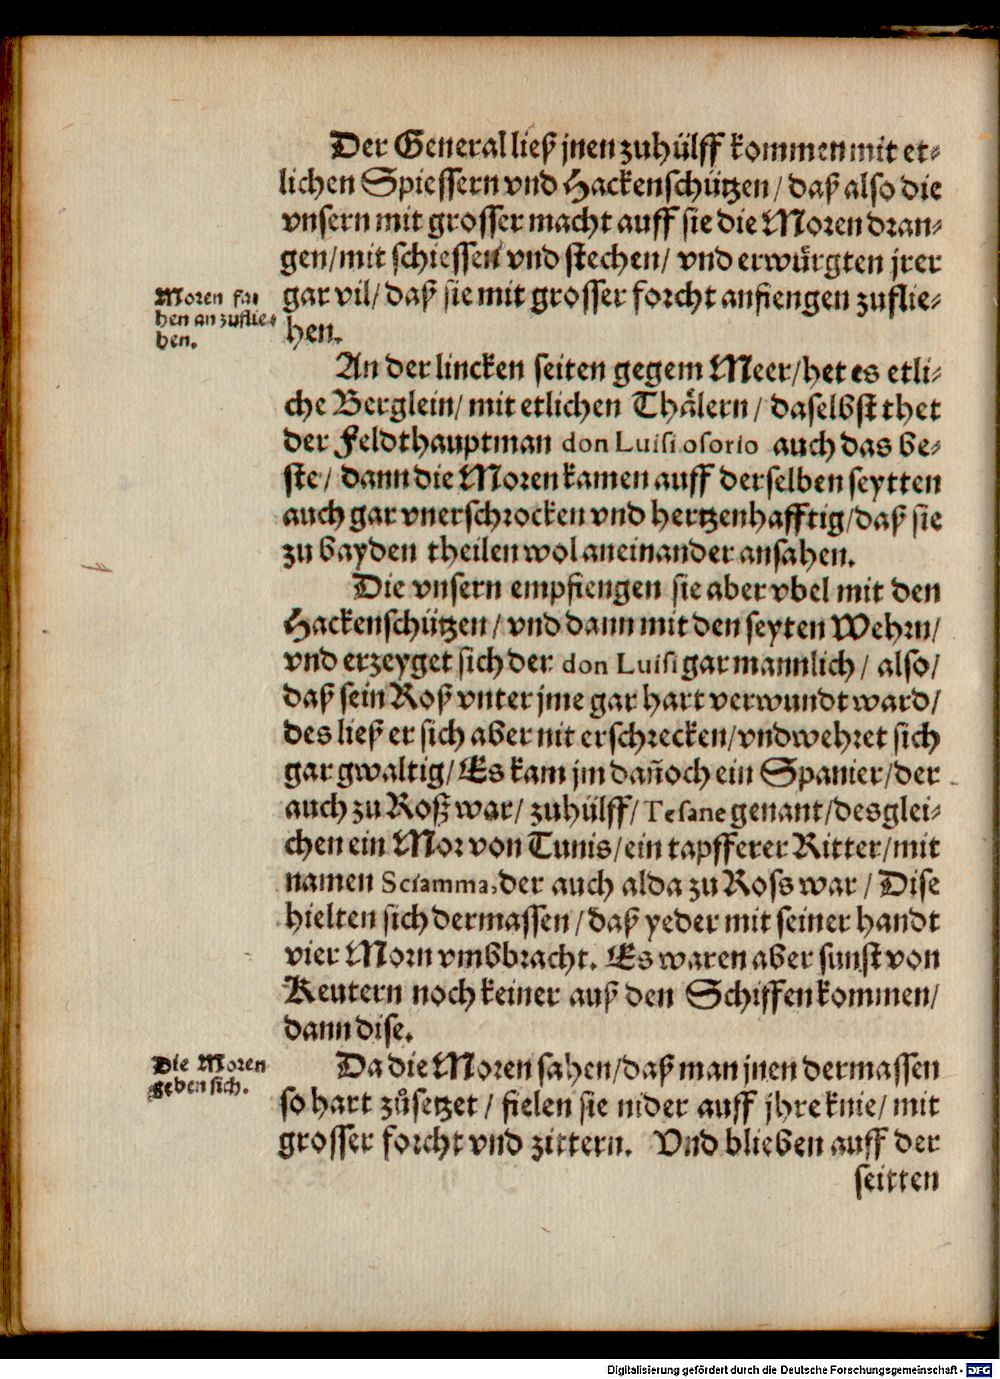 Der General ließ jnen zuhülff kommen mit et⸗
lichen Spiessern vnd Hackenschützen / daß also die
vnsern mit grosser macht auff sie die Moren dran⸗
gen / mit schiessen vnd stechen / vnd erwürgten jrer
Moren fa⸗
hen an zuflie⸗
hen.
gar vil / daß sie mit grosser forcht anfiengen zuflie⸗
hen.
An der lincken seiten gegem Meer / het es etli⸗
che Berglein / mit etlichen Thälern / daselbst thet
der Feldthauptman don Luisi osorio auch das be⸗
ste / dann die Moren kamen auff derselben seytten
auch gar vnerschrocken vnd hertzenhafftig / daß sie
zu bayden theilen wol aneinander ansahen.
Die vnsern empfiengen sie aber vbel mit den
Hackenschützen / vnd dann mit den seyten Wehrn /
vnd erzeyget sich der don Luisi gar mannlich / also /
daß sein Roß vnter jme gar hart verwundt ward /
des ließ er sich aber nit erschrecken / vnd wehret sich
gar gwaltig / Es kam jm dan̄och ein Spanier / der
auch zu Roß war / zuhülff / Tesane genant / desglei⸗
chen ein Mor von Tunis / ein tapfferer Ritter / mit
namen Sciamma, der auch alda zu Ross war / Dise
hielten sich dermassen / daß yeder mit seiner handt
vier Morn vmbbracht. Es waren aber sunst von
Reutern noch keiner auß den Schiffen kommen /
dann dise.
Die Moren
geben sich.
Da die Moren sahen / daß man jnen dermassen
so hart zůsetzet / fielen sie nider auff jhre knie / mit
grosser forcht vnd zittern. Vnd blieben auff der
seitten
Digitalisierung gefördert durch die Deutsche Forschungsgemeinschaft - DFG